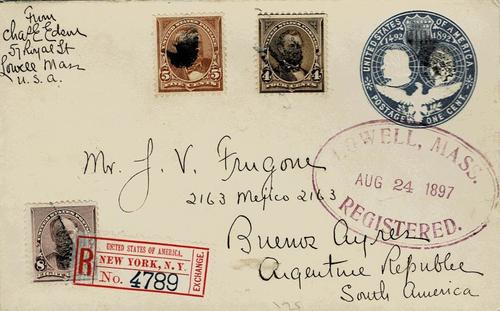 From
Chas E Edson
57 Royal St
Lowell Mass
U.S.A.
5 5
4 4
UNITED STATES OF AMERICA
1492 1892
POSTAGE ONE CENT
LOWELL, MASS.
AUG 24 1897
REGISTERED.
Mr. J. V. Frugone
2163 Mejico 2163
Buenos Ayres
Argentine Republic
South America
R
UNITED STATES OF AMERICA.
NEW YORK, N.Y.
No. 4789
EXCHANGE